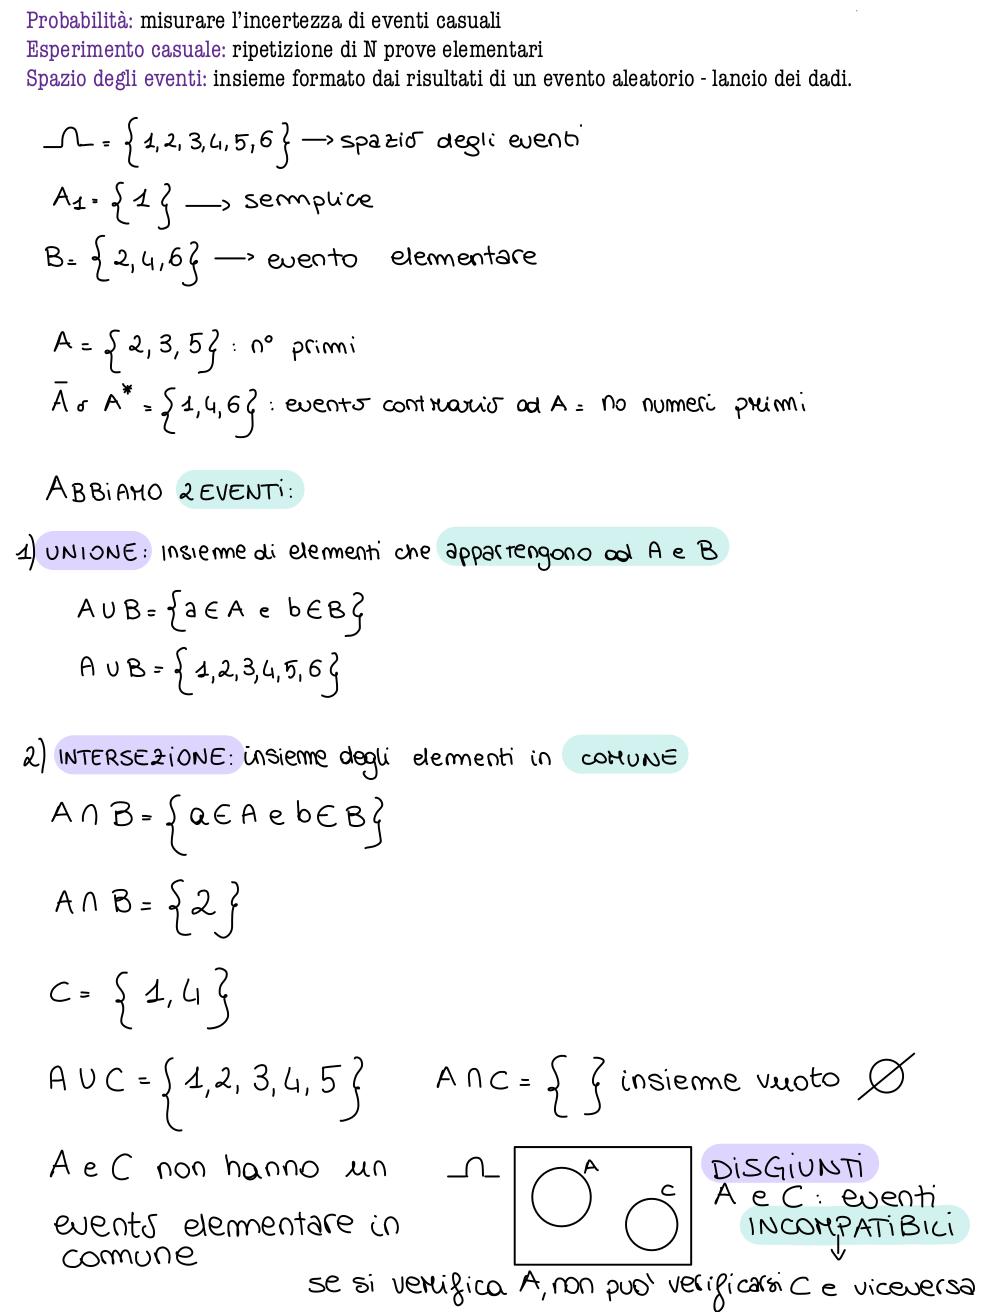 Probabilità: misurare l'incertezza di eventi casuali
Esperimento casuale: ripetizione di N prove elementari
Spazio degli eventi: insieme formato dai risultati di un evento aleatorio - lancio dei dadi.
Ω = {1,2,3,4,5,6} → spazio degli eventi
A1 = {1} → semplice
B = {2,4,6} → evento elementare
A = {2,3,5} : n° primi
Ā o A* = {1,4,6} : evento contrario ad A = no numeri primi
ABBIAMO 2 EVENTI:
1) UNIONE: insieme di elementi che appartengono ad A e B
A∪B = {a∈A e b∈B}
A∪B = {1,2,3,4,5,6}
2) INTERSEZIONE: insieme degli elementi in COMUNE
A∩B = {a∈A e b∈B}
A∩B = {2}
C = {1,4}
A∪C = {1,2,3,4,5} A∩C = { } insieme vuoto Ø
A e C non hanno un
evento elementare in
comune
Ω A C
DISGIUNTI
A e C : eventi
INCOMPATIBILI
↓
se si verifica A, non può verificarsi C e viceversa